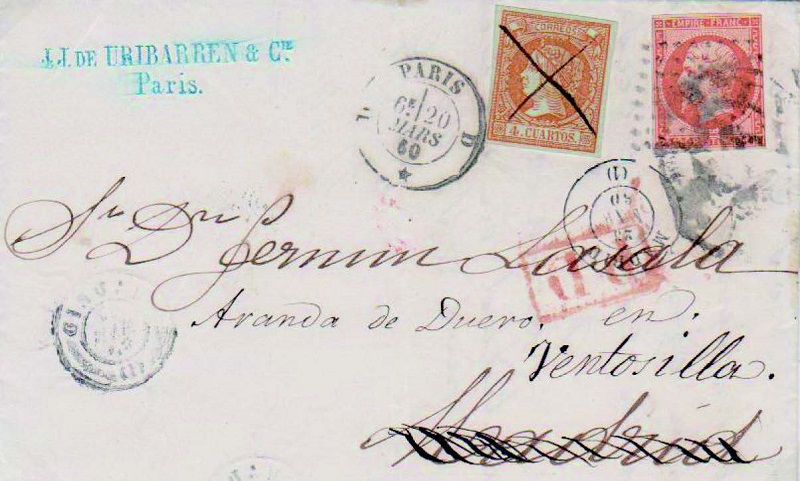 J. J. DE URIBARREN & Cie
Paris.
PARIS
6E 20
MARS
60
D
CORREOS
4 CUARTOS.
EMPIRE FRANC
(1)
Sr. Dn. Fermin Lasala
P.D.
Aranda de Duero. en
Ventosilla.
Madrid
(1)